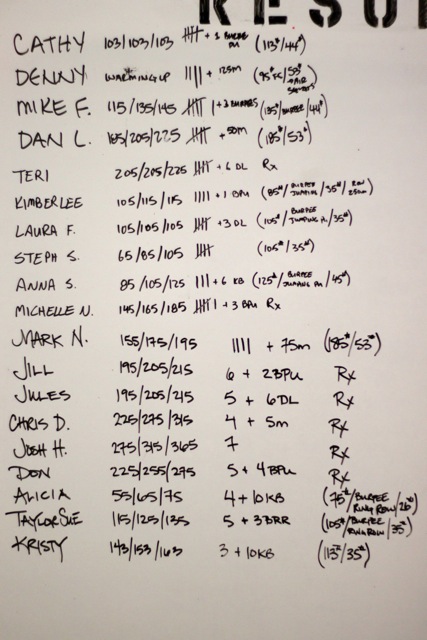 RESU
CATHY 103/103/103 |||| + 1 BURPEE PU (113#/44#)
DENNY WARMING UP |||| + 125M (95# FC/53#
MIKE F. 115/135/145 |||| | + 3 BURPEES (135#/BURPEE/44#)
DAN L. 185/205/225 |||| + 50M (185#/53#)
TERI 205/205/225 |||| + 6 DL Rx
KIMBERLEE 105/115/115 |||| + 1 BPU (85#/BURPEE JUMPING/35#/ROW
LAURA F. 105/105/105 |||| + 3DL (105#/BURPEE JUMPING PU/35#)
STEPH S. 65/85/105 |||| (105#/35#)
ANNA S. 85/105/125 ||| + 6 KB (125#/BURPEE JUMPING PU/45#)
MICHELLE N. 145/165/185 |||| | + 3 BPU Rx
MARK N. 155/175/195 |||| + 75m (185#/53#)
JILL 195/205/215 6 + 2BPU Rx
JULES 195/205/215 5 + 6DL Rx
CHRIS D. 225/275/315 4 + 5m Rx
JOSH H. 275/315/365 7 Rx
DON 225/255/275 5 + 4BPU Rx
ALICIA 55/65/75 4 + 10KB (75#/BURPEE RING ROW/26#)
TAYLOR SUE 115/125/135 5 + 3BRR (105#/BURPEE RING ROW/35#)
KRISTY 143/153/163 3 + 10KB (113#/35#)